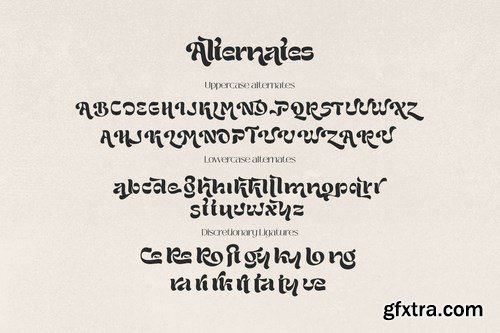 Alternates
Uppercase alternates
ABCDEGHIJKLMNO.PQRSTUUWXZ
AHJKLMNORTUUWZARU
Lowercase alternates
abcdeghhikklllmnopqrr
sttuuwxyz
Discretionary Ligatures
Ce Re Ro fi gy ky lo ng
ra ri rk ri ta ty ue
gfxtra.com